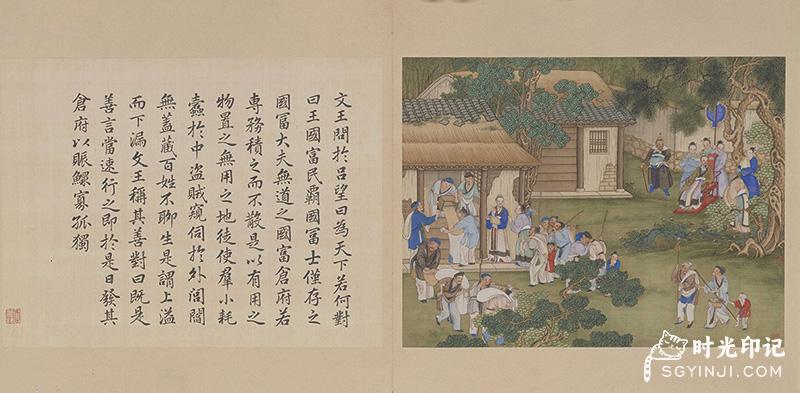 文王問於呂望曰為天下若何對
曰王國富民霸國冨士僅存之
國冨大夫無道之國富倉府若
專務積之而不散是以有用之
物置之無用之地徒使羣小耗
蠹於中盜賊窺伺於外閭閻
無蓋藏百姓不聊生是謂上溢
而下漏文王稱其善對曰既是
善言當速行之即於是日發其
倉府以賑鰥寡孤獨
时光印记
SGYINJI.COM